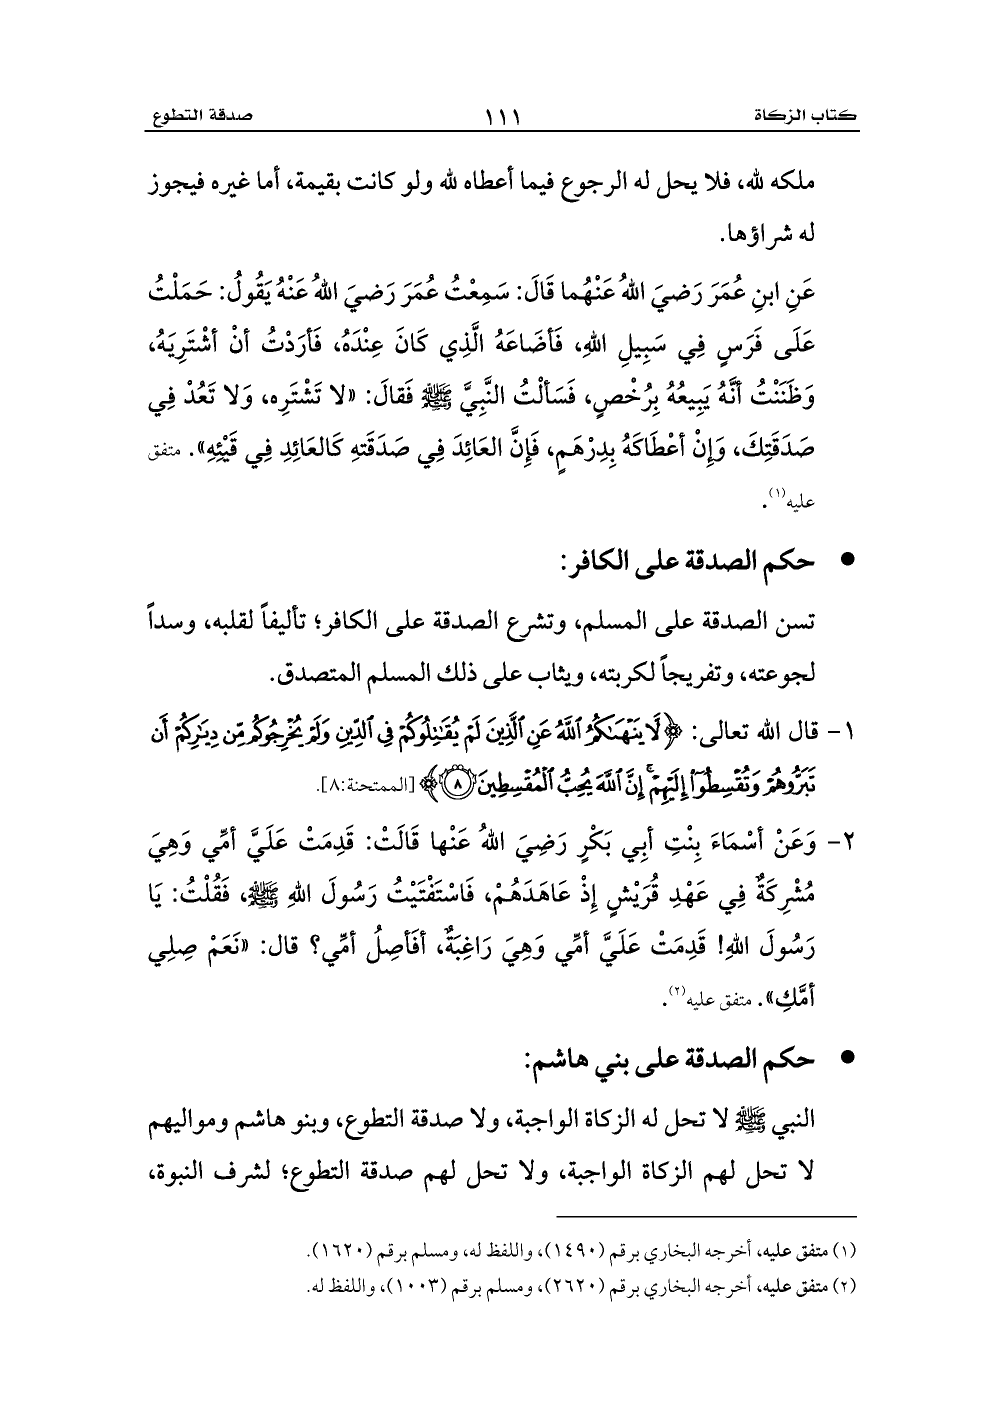 كتاب الزكاة ١١١ صدقة التطوع
ملكه لله، فلا يحل له الرجوع فيما أعطاه لله ولو كانت بقيمة، أما غيره فيجوز
له شراؤها.
عَنِ ابنِ عُمَرَ رَضيَ اللهُ عَنْهُما قَالَ: سَمِعْتُ عُمَرَ رَضيَ اللهُ عَنْهُ يَقُولُ: حَمَلْتُ
عَلَى فَرَسٍ فِي سَبِيلِ اللهِ، فَأضَاعَهُ الَّذِي كَانَ عِنْدَهُ، فَأرَدْتُ أنْ أشْتَرِيَهُ،
وَظَنَنْتُ أنَّهُ يَبِيعُهُ بِرُخْصٍ، فَسَألْتُ النَّبِيَّ ﷺ فَقالَ: «لا تَشْتَرِه، وَلا تَعُدْ فِي
صَدَقَتِكَ، وَإِنْ أعْطَاكَهُ بِدِرْهَمٍ، فَإِنَّ العَائِدَ فِي صَدَقَتهِ كَالعَائِدِ فِي قَيْئِهِ». متفق
عليه(١).
● حكم الصدقة على الكافر:
تسن الصدقة على المسلم، وتشرع الصدقة على الكافر؛ تأليفاً لقلبه، وسداً
لجوعته، وتفريجاً لكربته، ويثاب على ذلك المسلم المتصدق.
١- قال الله تعالى: ﴿لَّا يَنْهَىٰكُمُ ٱللَّهُ عَنِ ٱلَّذِينَ لَمْ يُقَٰتِلُوكُمْ فِي ٱلدِّينِ وَلَمْ يُخْرِجُوكُم مِّن دِيَٰرِكُمْ أَن
تَبَرُّوهُمْ وَتُقْسِطُوٓا۟ إِلَيْهِمْ ۚ إِنَّ ٱللَّهَ يُحِبُّ ٱلْمُقْسِطِينَ ٨﴾ [الممتحنة:٨].
٢- وَعَنْ أسْمَاءَ بِنْتِ أبِي بَكْرٍ رَضِيَ اللهُ عَنْها قَالَتْ: قَدِمَتْ عَلَيَّ أمِّي وَهِيَ
مُشْرِكَةٌ فِي عَهْدِ قُرَيْشٍ إذْ عَاهَدَهُمْ، فَاسْتَفْتَيْتُ رَسُولَ اللهِ ﷺ، فَقُلْتُ: يَا
رَسُولَ اللهِ! قَدِمَتْ عَلَيَّ أمِّي وَهِيَ رَاغِبَةٌ، أفَأصِلُ أمِّي؟ قال: «نَعَمْ صِلِي
أمَّكِ». متفق عليه(٢).
● حكم الصدقة على بني هاشم:
النبي ﷺ لا تحل له الزكاة الواجبة، ولا صدقة التطوع، وبنو هاشم ومواليهم
لا تحل لهم الزكاة الواجبة، ولا تحل لهم صدقة التطوع؛ لشرف النبوة،
(١) متفق عليه، أخرجه البخاري برقم (١٤٩٠)، واللفظ له، ومسلم برقم (١٦٢٠).
(٢) متفق عليه، أخرجه البخاري برقم (٢٦٢٠)، ومسلم برقم (١٠٠٣)، واللفظ له.